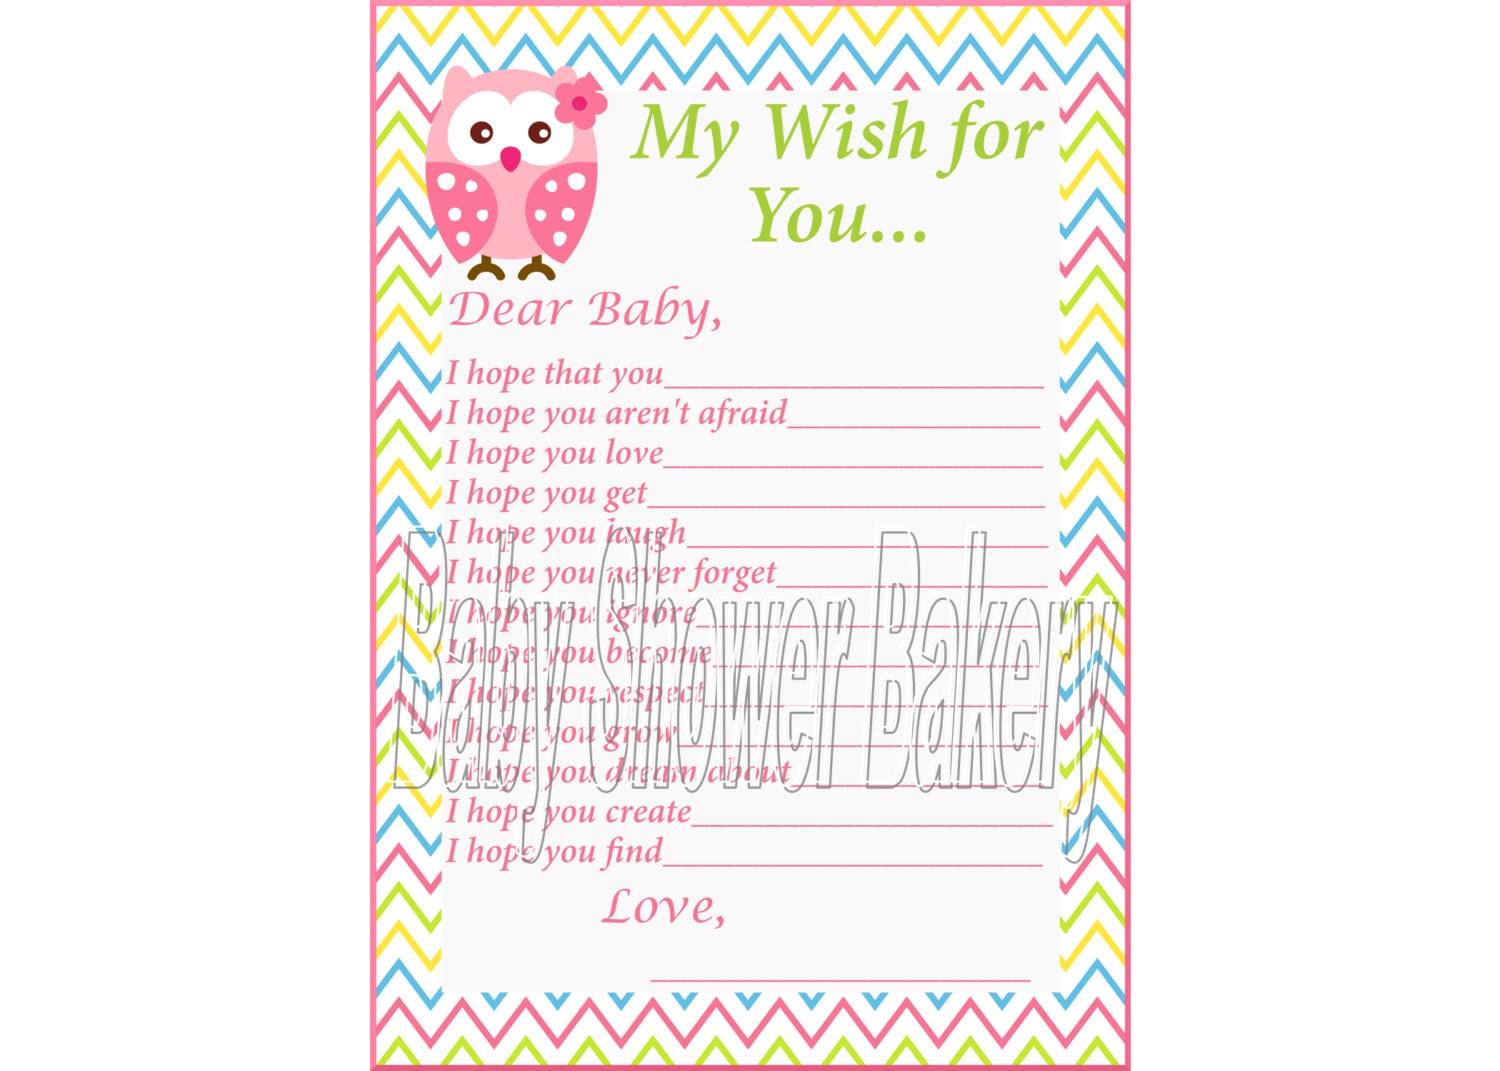 My Wish for
You...
Dear Baby,
I hope that you__________
I hope you aren't afraid__________
I hope you love__________
I hope you get__________
I hope you laugh__________
I hope you never forget__________
I hope you ignore__________
I hope you become__________
I hope you respect__________
I hope you grow__________
I hope you dream about__________
I hope you create__________
I hope you find__________
Love,
__________
Baby Shower Bakery